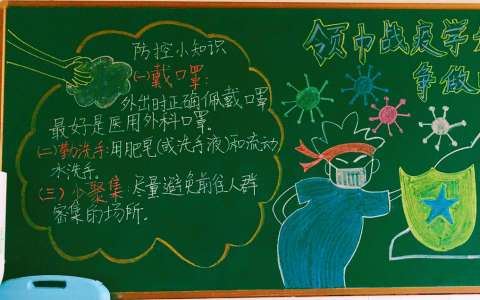 防控小知识
(一)戴口罩：
外出时正确佩戴口罩
最好是医用外科口罩。
(二)勤洗手：用肥皂(或洗手液)和流动
水洗手。
(三)少聚集：尽量避免前往人群
密集的场所。
领巾战疫学
争做